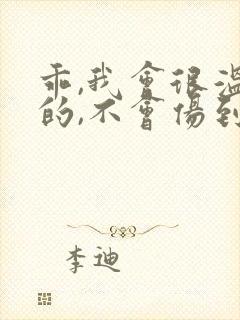 乖,我會很溫
的,不會傷到
李迪